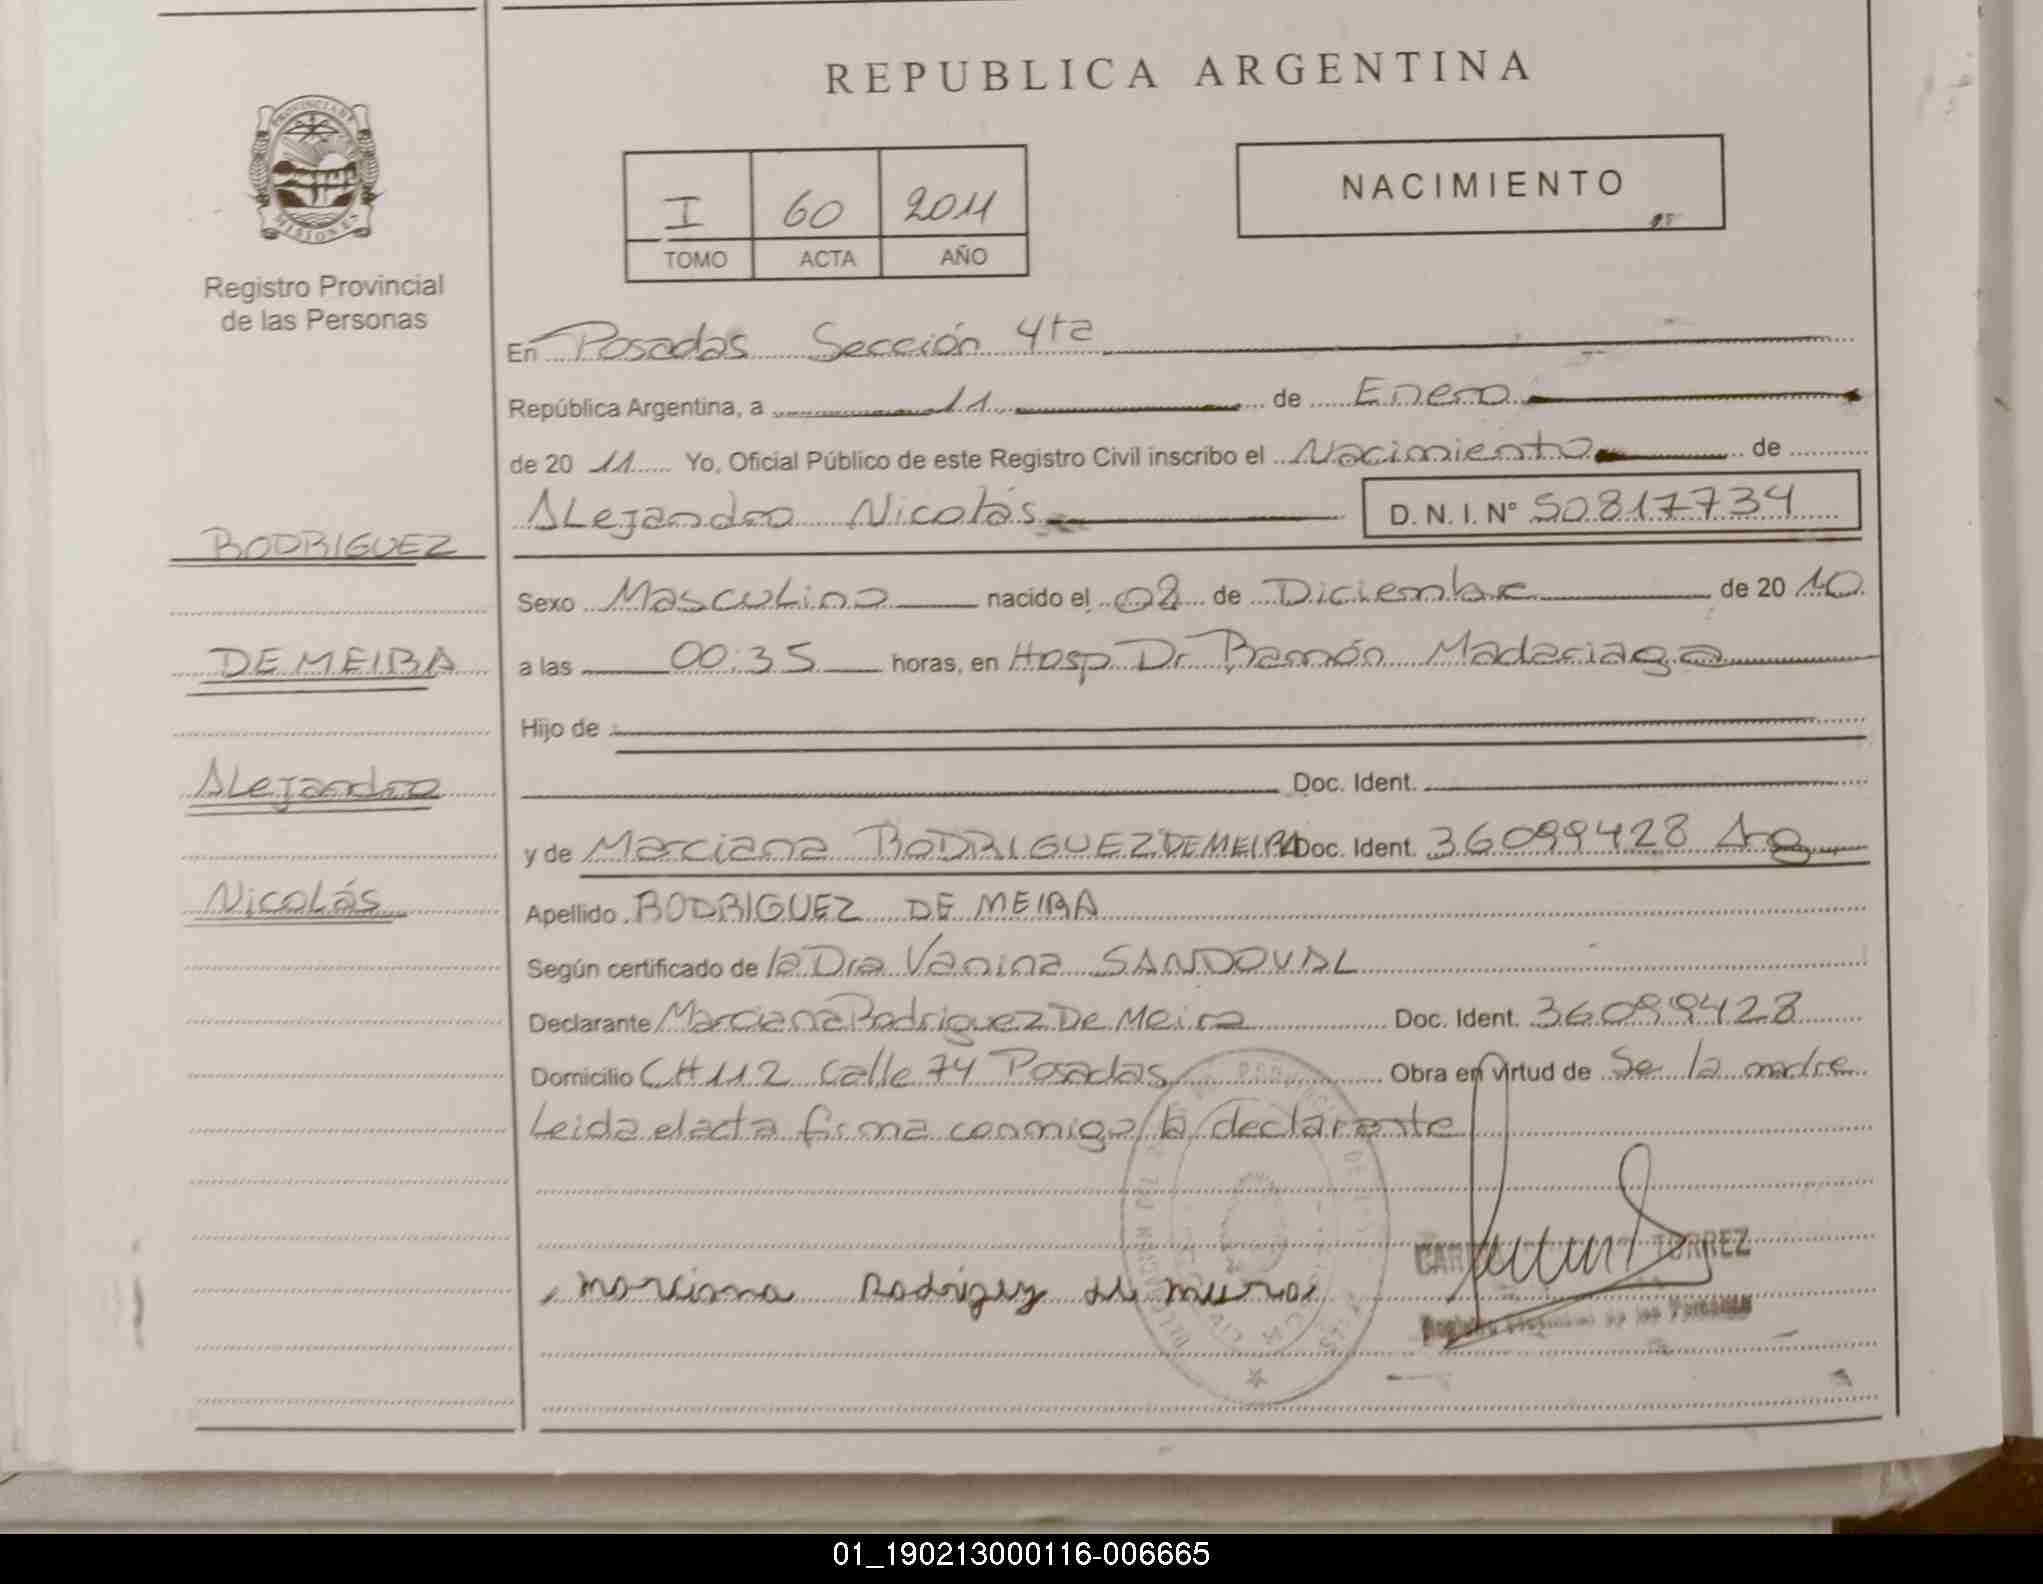 REPUBLICA ARGENTINA
PROVINCIA DE MISIONES
Registro Provincial
de las Personas
I 60 2011
TOMO ACTA AÑO
NACIMIENTO
En Posadas Sección 4ta
República Argentina, a 11 de Enero
de 20 11 Yo, Oficial Público de este Registro Civil inscribo el Nacimiento de
Alejandro Nicolás D.N.I.Nº 50817734
RODRIGUEZ
Sexo Masculino nacido el 02 de Diciembre de 20 10
DE MEIRA
a las 00:35 horas, en Hosp Dr Ramón Madariaga
Hijo de
Alejandro
Doc. Ident.
y de Marciana RODRIGUEZ DE MEIRA Doc. Ident. 36099428 Arg
Nicolás
Apellido RODRIGUEZ DE MEIRA
Según certificado de la Dra Vanina SANDOVAL
Declarante Marciana Rodriguez De Meira Doc. Ident. 36099428
Domicilio CH 112 Calle 74 Posadas Obra en virtud de Se la madre
Leida el acta firma conmigo la declarante
TORREZ
de las Personas
01_190213000116-006665